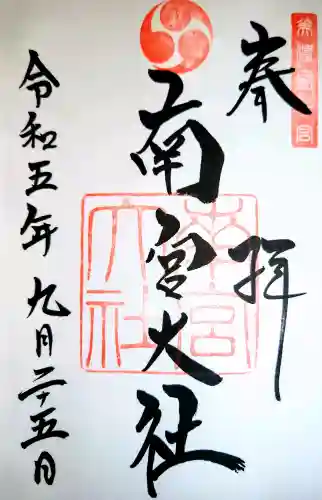 美濃国一宮
奉拝
南宮大社
南宮大社
令和五年九月二十五日